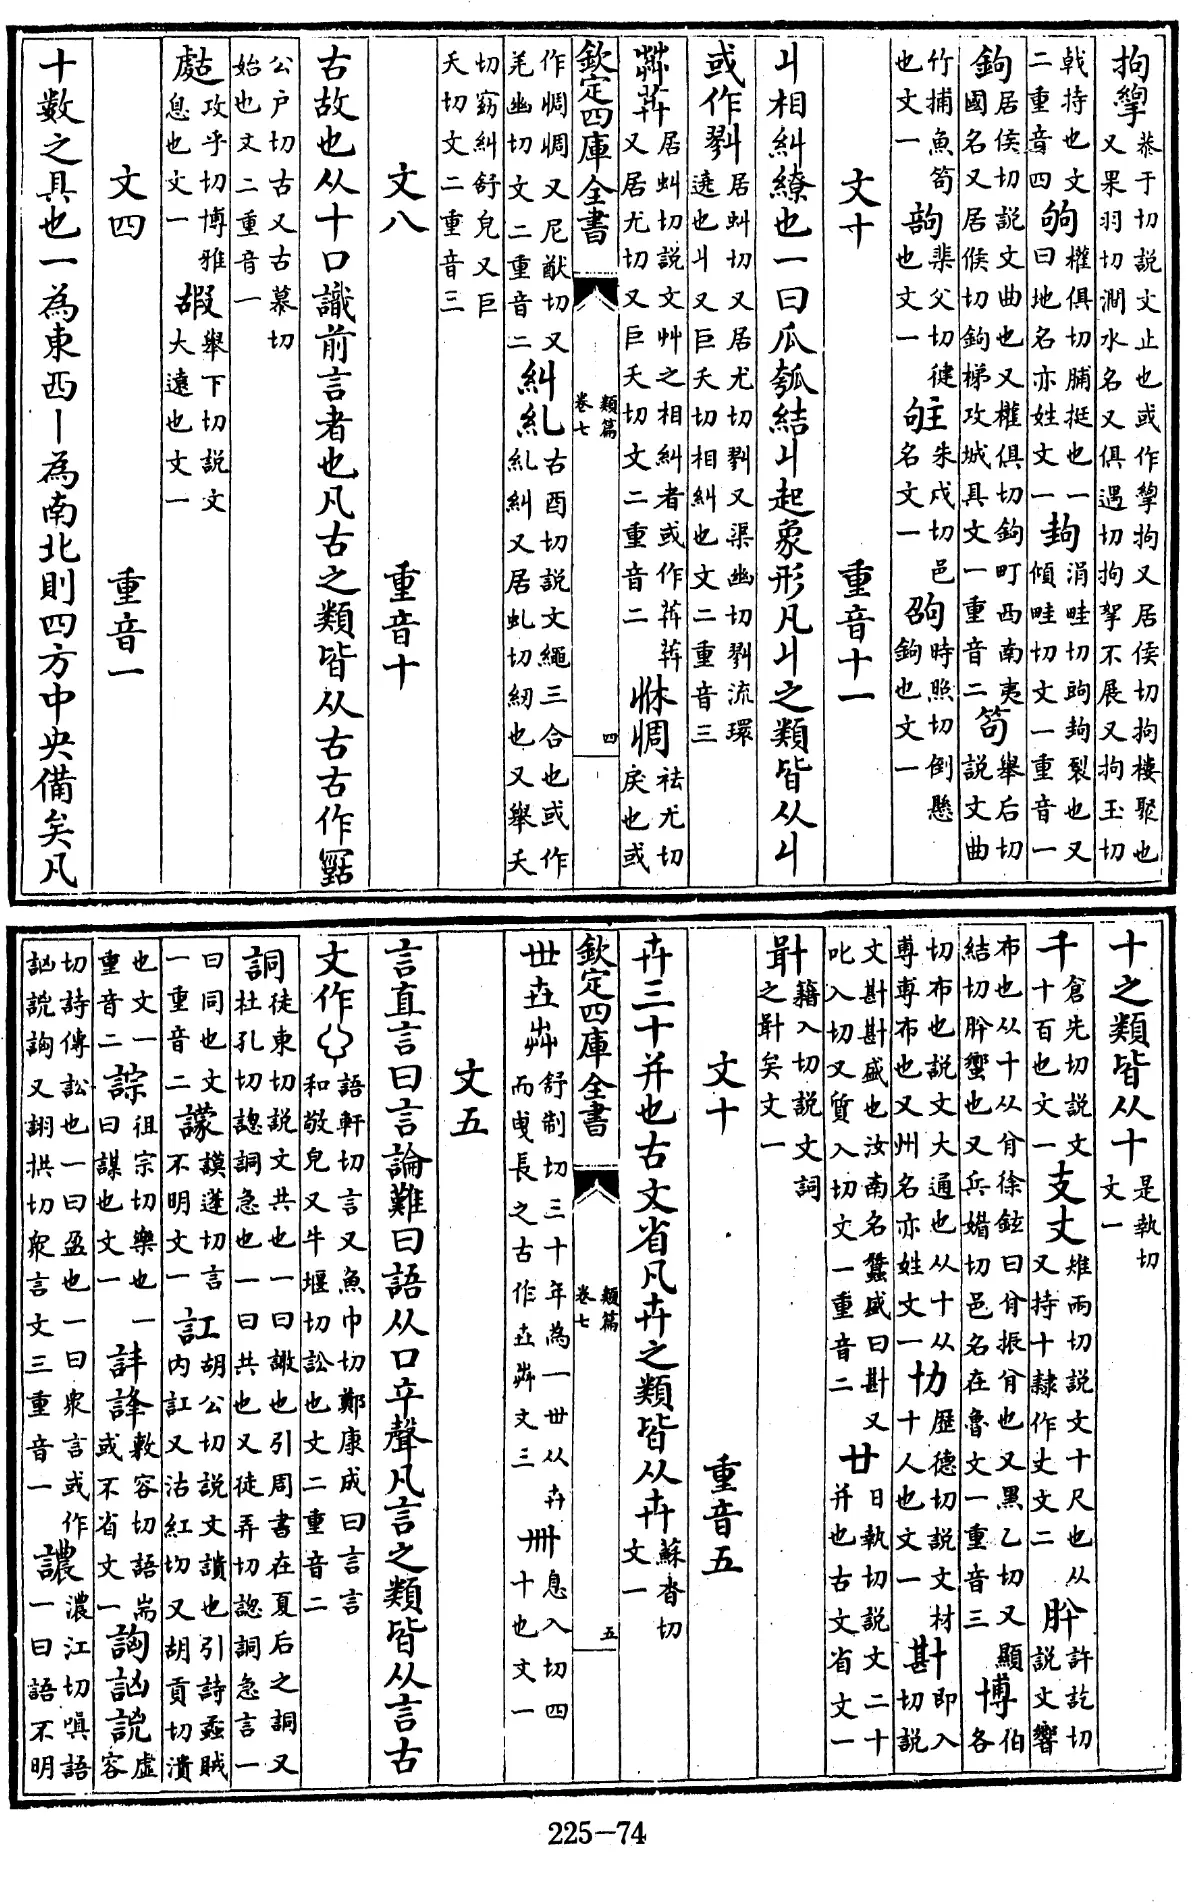 拘 恭于切説文止也或作 拘又居侯切拘摟聚也又果羽切澗水名又俱遇切拘拏不展又拘玉切
戟持也文二重音四 朐 權俱切脯挺也一曰地名亦姓文一 涓畦切 裂也又傾畦切文一重音一
鉤 居侯切説文曲也又權俱切鉤町西南夷國名又居候切鉤梯攻城具文一重音二 笱 舉后切説文曲
竹捕魚笱也文一 裴父切健也文一 朱戍切邑名文一 時照切倒懸鉤也文一
文十 重音十一
丩相糾繚也一曰瓜瓠結丩起象形凡丩之類皆从丩
或作㔀 居虯切又居尤切㔀又渠幽切㔀流環遶也丩又巨夭切相糾也文二重音三
居虯切説文艸之相糾者或作 又居尤切又巨夭切文二重音二 惆 祛尤切戾也或
欽定四庫全書 類篇卷七 四
作惆惆又尼猷切又羌幽切文二重音二 糾糺 古酉切説文繩三合也或作糺糾又居虬切紉也又舉夭
切窈糾舒皃又巨夭切文二重音三
文八 重音十
古故也从十口識前言者也凡古之類皆从古古作𠖠
公户切古又古慕切始也文二重音一
攻乎切博雅息也文一 嘏 舉下切説文大遠也文一
文四 重音一
十數之具也一為東西丨為南北則四方中央備矣凡
十之類皆从十 是執切文一
千 倉先切説文十百也文一 支丈 雉兩切説文十尺也从又持十隸作丈文二 肸 許訖切説文響
布也从十从㑞徐鉉曰㑞振㑞也又黑乙切又顯結切肸蠁也又兵媚切邑名在魯文一重音三 博 伯各
切布也説文大通也从十从尃尃布也又州名亦姓文一 协 歷德切説文材十人也文一 斟 即入切説
文斟斟盛也汝南名蠶盛曰斟又叱入切又質入切文一重音二 廿 日執切説文二十并也古文省文一
籍入切説文詞之 矣文一
文十 重音五
卉三十并也古文省凡卉之類皆从卉 蘇沓切文一
欽定四庫全書 類篇卷七 五
丗 舒制切三十年為一世从卉而曳長之古作 文三 卌 息入切四十也文一
文五
言直言曰言論難曰語从口䇂聲凡言之類皆从言古
文作 語軒切言又魚巾切鄭康成曰言言和敬皃又牛堰切訟也文二重音二
詷 徒東切説文共也一曰譀也引周書在夏后之詷又杜孔切諰詷急也一曰共也又徒弄切諰詷急言一
曰同也文一重音二 謨蓬切言不明文一 訌 胡公切説文讃也引詩蟊賊内訌又沽紅切又胡貢切潰
也文一重音二 誴 徂宗切樂也一曰謀也文一 䛔 敷容切語耑或不省文一 訩説 虛容
切詩傳訟也一曰盈也一曰衆言或作訩説 又詡拱切衆言文三重音一 譨 濃江切嗔語一曰語不明
225-74